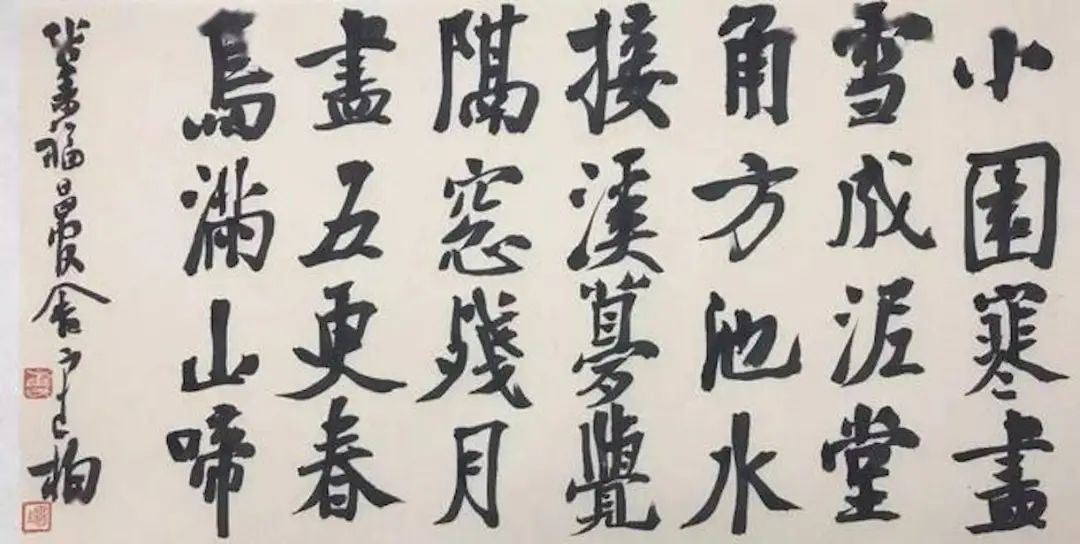 小園寒盡
雪成泥堂
角方池水
接溪夢覺
隔窓殘月
盡五更春
鳥滿山啼
福昌 舍 柏